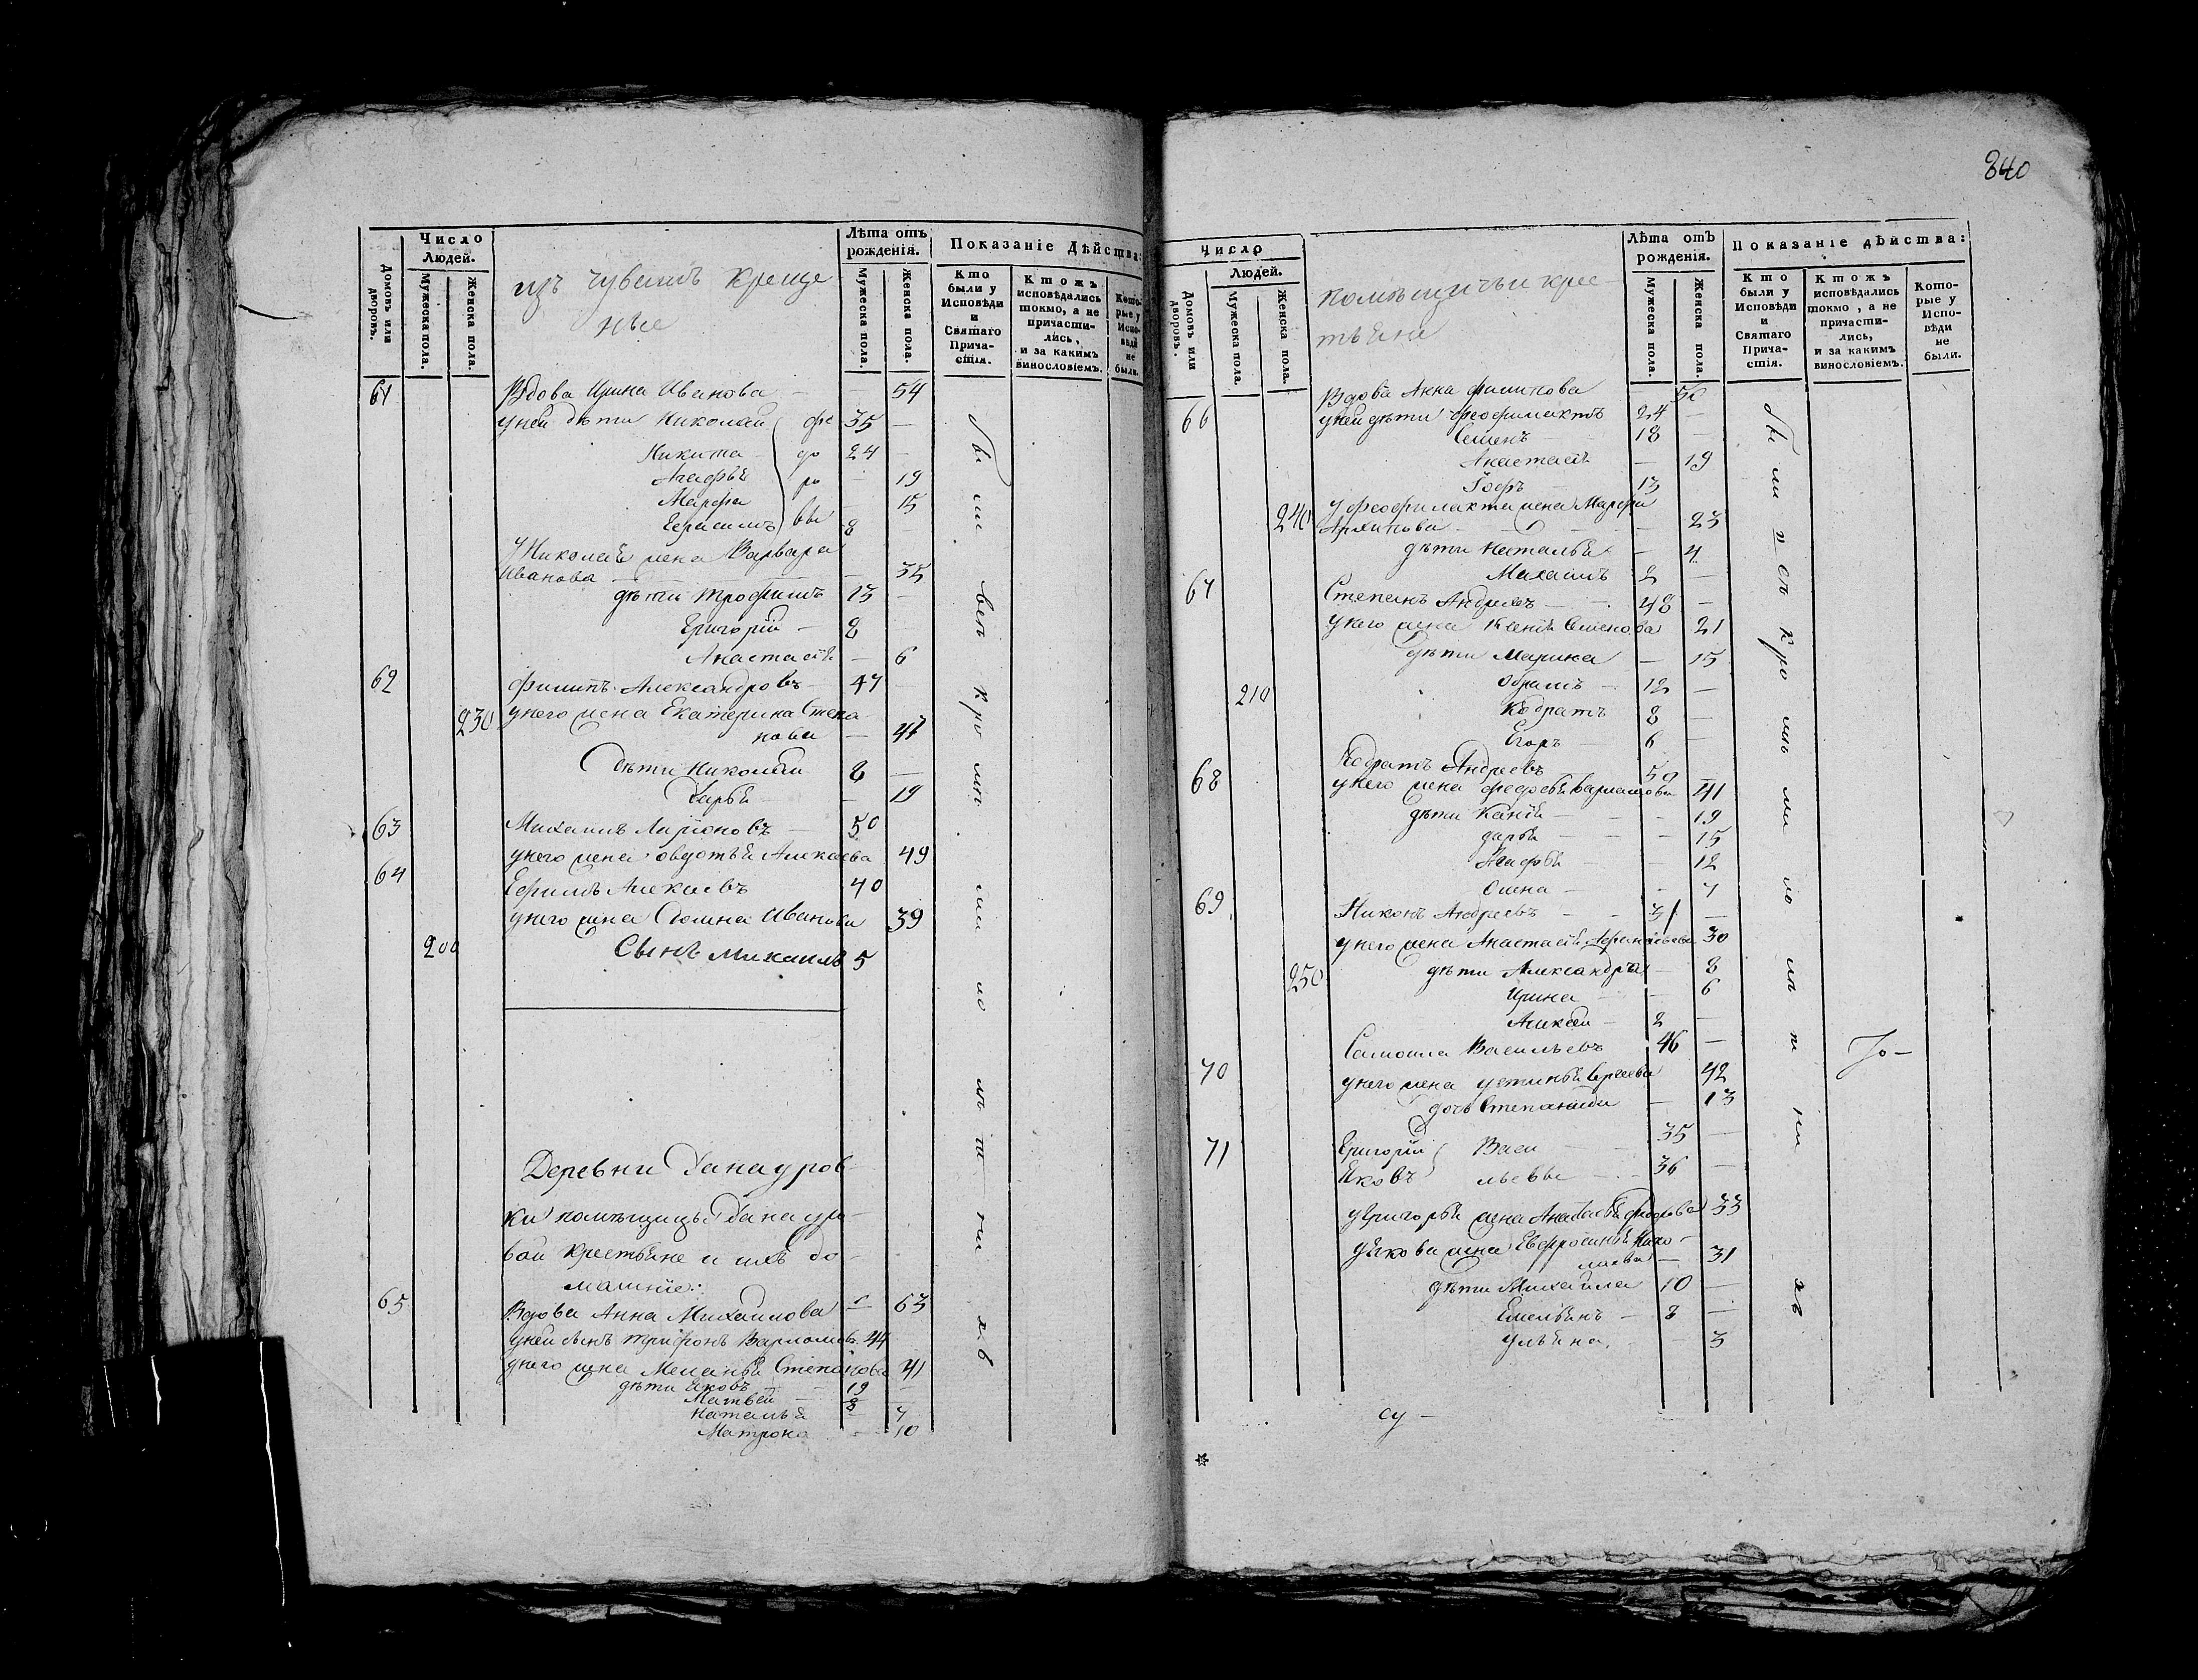 Число
Людей.
Домовъ или дворовъ.
Мужеска пола.
Женска пола.
изъ чувашъ креще
ные
Лѣта отъ
рожденія.
Мужеска пола.
Женска пола.
Показаніе Дѣйства:
Кто
были у
Исповѣди
и
Святаго
Прича-
стія.
Ктожъ
исповѣдались
токмо, а не
причасти-
лись,
и за какимъ
винословіемъ.
Кото-
рые у
Испо-
вѣди
не
были.
61 Вдова Ирина Иванова — 54
у ней дѣти Николай фе 35 —
Никита до 24 —
Агафья ро — 19
Марфа — 15
Герасимъ вы 8
у Николая жена Варвара
Иванова — 35
дѣти Трофимъ 13 —
Григорій — 8
Анастасія — 6
62 Филипъ Александровъ — 47 —
230 у него жена Екатерина Степа-
нова — 47
дѣти Николай 8 —
Дарья — 19
63 Михаилъ Ларіоновъ — 50
у него жена Овдотья Алексѣева 49
64 Ефимъ Алексѣевъ 40
у него жена Иванова 39
200 Сынъ Михаилъ 5
Деревни Танауров
ки помѣщицы Танауро-
вой крестьяне и ихъ до-
машніе:
65 Вдова Анна Михайлова — 63
у ней сынъ Трифонъ Варламовъ 44
у него жена Меланья Степанова 41
дѣти Яковъ — 19 —
Матвей — 8 —
Наталья — 7
Матрона — 10
840
Число
Людей.
Домовъ или дворовъ.
Мужеска пола.
Женска пола.
помѣщичьи крес-
тьяне
Лѣта отъ
рожденія.
Мужеска пола.
Женска пола.
Показаніе дѣйства:
Кто
были у
Исповѣди
и
Святаго
Прича-
стія.
Ктожъ
исповѣдались
токмо, а не
причасти-
лись,
и за какимъ
винословіемъ.
Кото-
рые у
Испо-
вѣди
не
были.
Вдова Анна Филипова 50
66 у ней дѣти Феофилактъ 24 —
Семенъ 18 —
Анастасія — 19
13
240 у Феофилакта жена Марфа
Архипова — 23
дѣти Наталья — 4
Михаилъ 2 —
67 Степанъ Андреевъ — 48 —
у него жена Ксенія Семенова 21
дѣти Марина — 15
210 Абрамъ — 12 —
Кодратъ 8 —
Егоръ 6 —
Кодратъ Андреевъ 50 —
68 у него жена Федосья Варламова 41
дѣти — 19
Дарья — 15
Агафья — 12
Олена — 7
69 Никонъ Андреевъ — 31 —
у него жена Анастасія 30
250 дѣти Александра — 8
Ирина — 6
Алексѣй — 2 —
Самойла Васильевъ 46 —
70 у него жена Устинья Сергеева 42
дочь Степанида — 13
71 Григорій Васи 35 —
Яковъ льевы — 36 —
у Григорья жена Федорова 33
у Якова жена Евфросинья Нико-
лаева — 31
дѣти Михайла 10 —
Емельянъ — 8 —
Ульяна — 3
су —